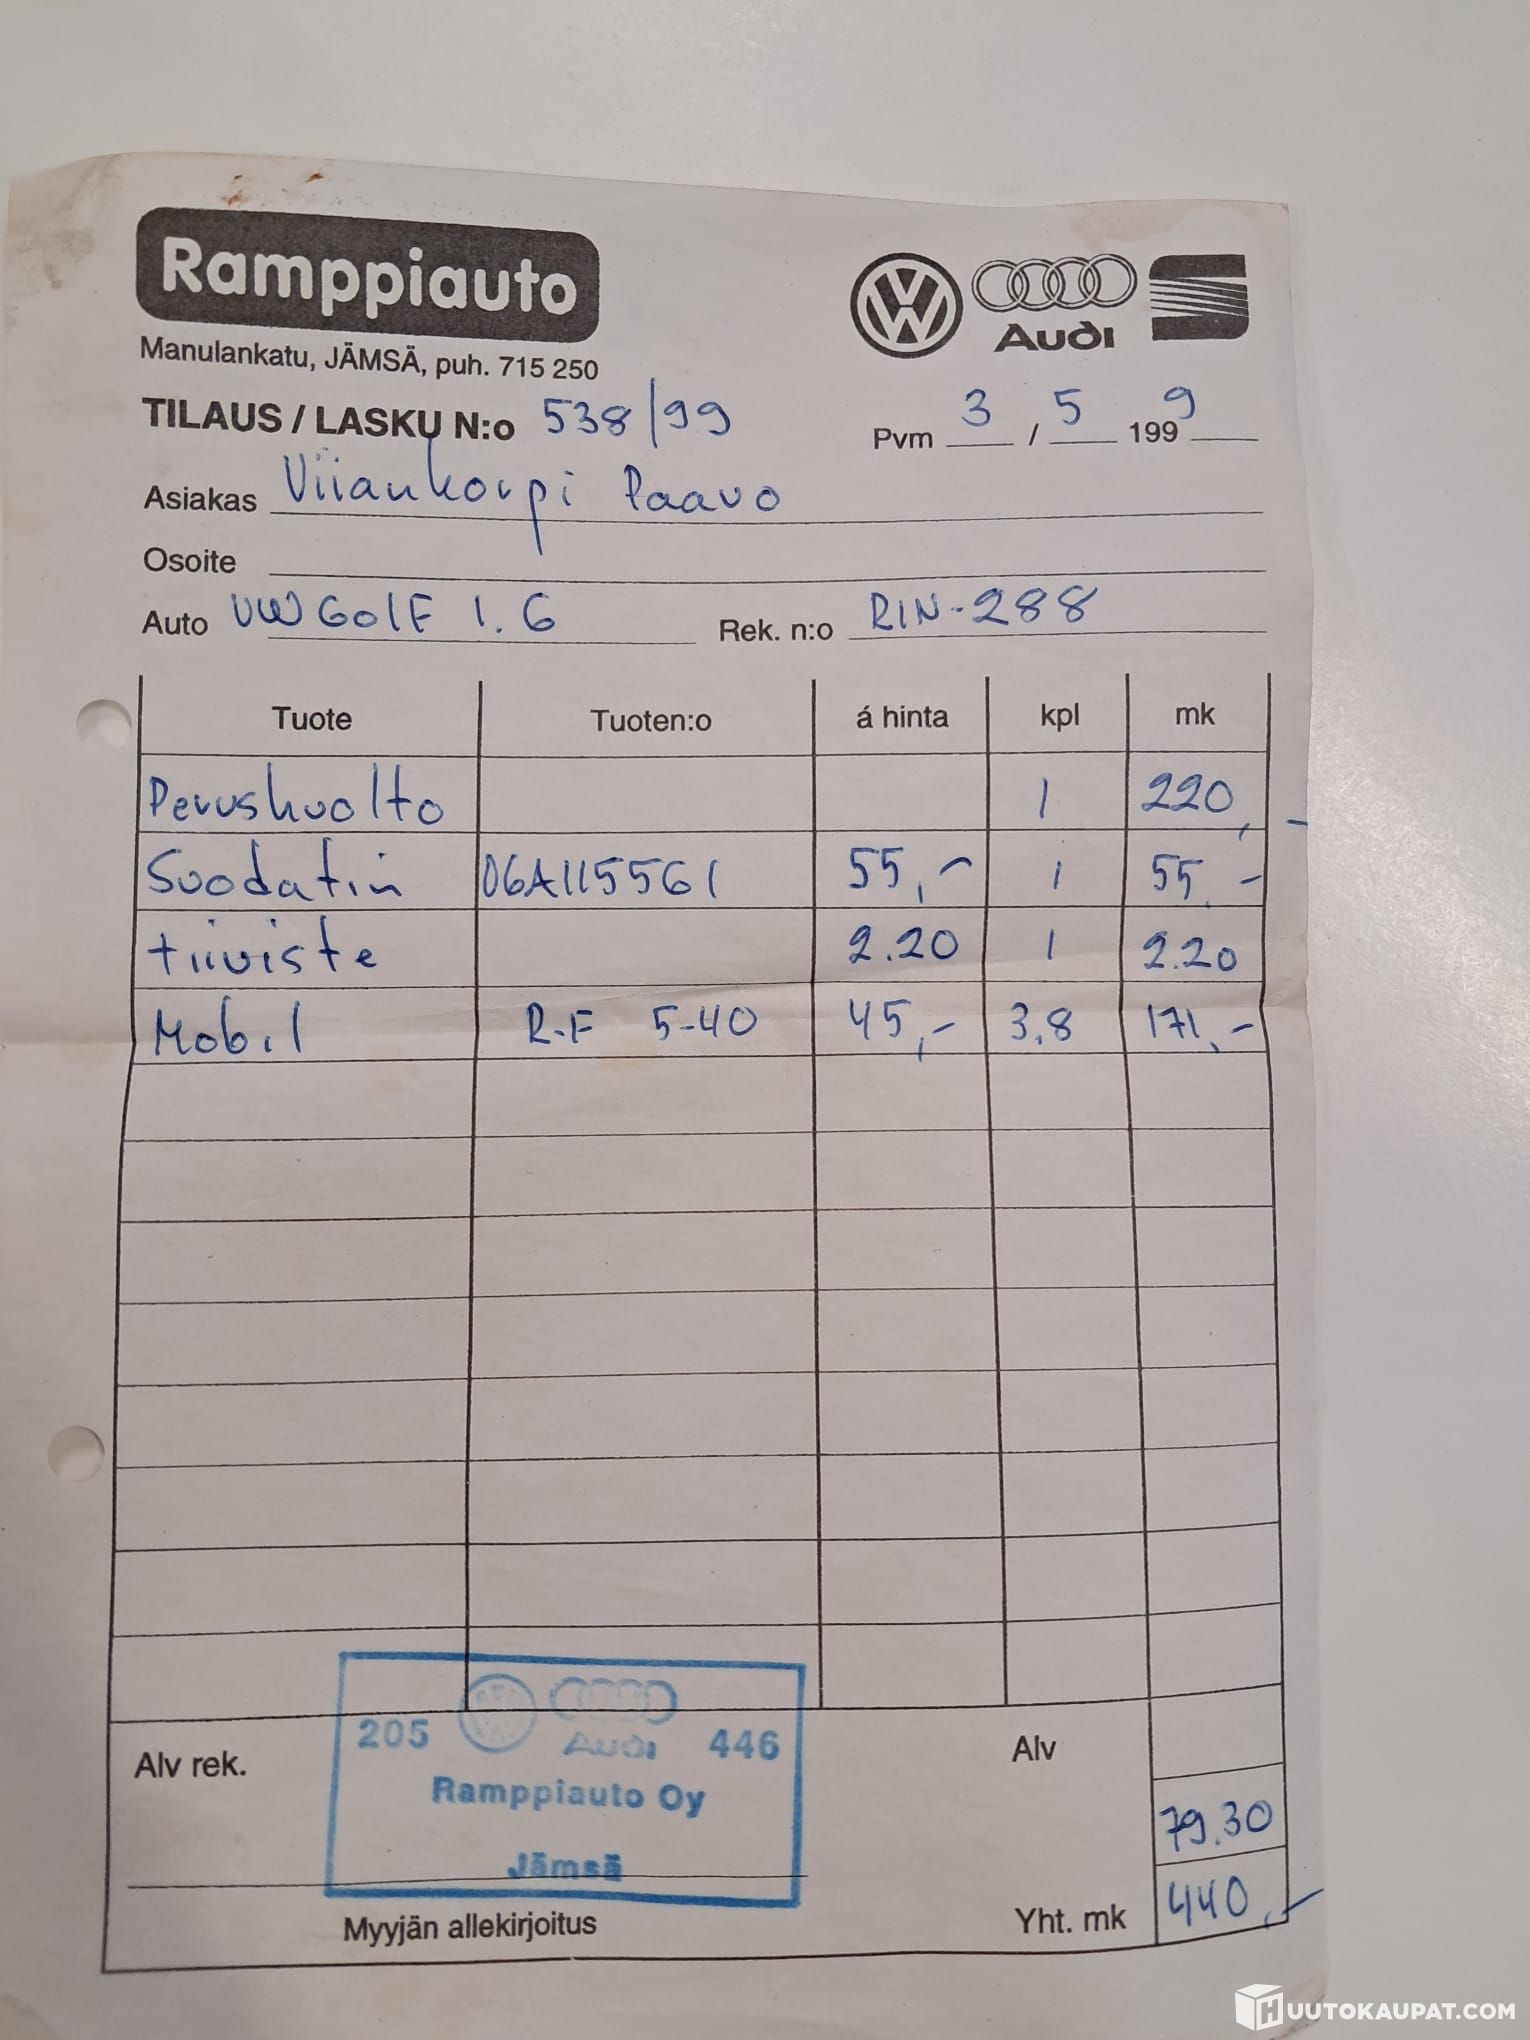 Ramppiauto
Audi
Manulankatu, JÄMSÄ, puh. 715 250
TILAUS / LASKU N:o 538/99
Pvm 3 / 5 1999
Asiakas Viiankorpi Paavo
Osoite
Auto VW GOlF 1.6 Rek. n:o RIN-288
Tuote Tuoten:o á hinta kpl mk
Perushuolto 1 220,-
Suodatin 06A115561 55,- 1 55,-
tiiviste 2.20 1 2.20
Mobil R-F 5-40 45,- 3,8 171,-
Alv rek. Alv
205 Audi 446
Ramppiauto Oy
Jämsä
79.30
Myyjän allekirjoitus Yht. mk 440,-
HUUTOKAUPAT.COM